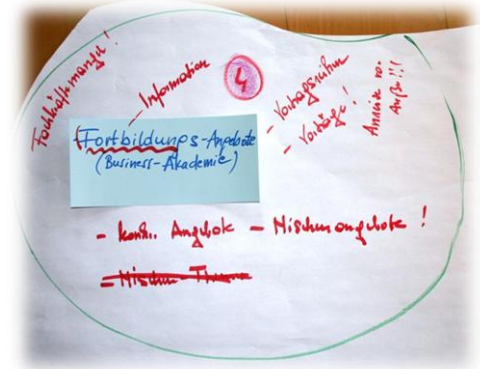 Fachkräftemangel!
- Information
4
- Vortragsreihen
- Vorträge!
Anreize von
Außen!!!
Fortbildungs-Angebote
(Business-Akademie)
- Angebote - Nischenangebote!